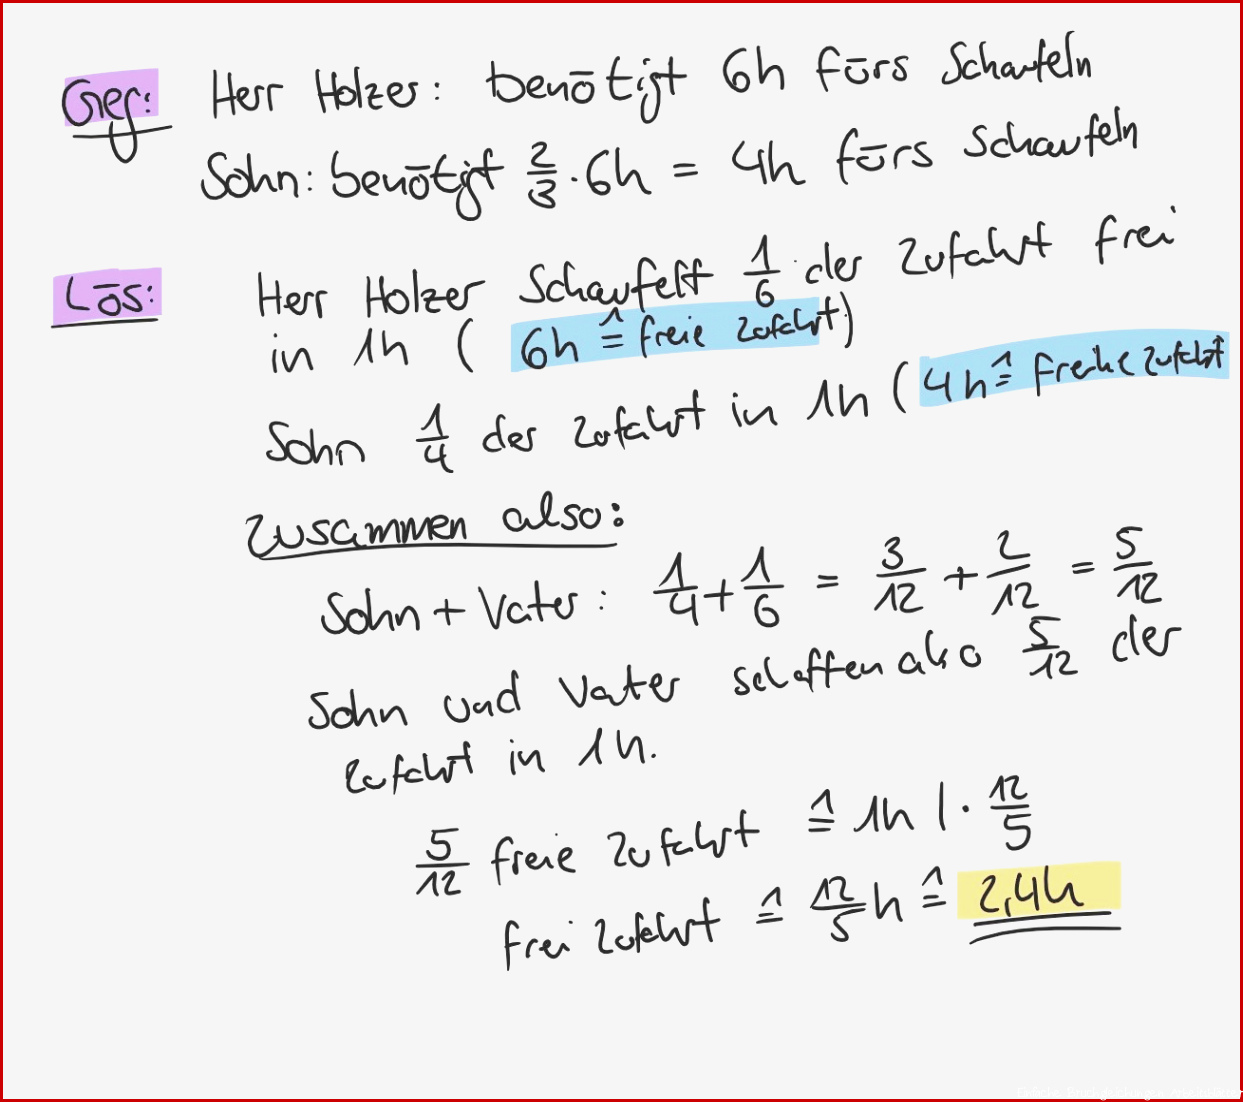 Geg: Herr Holzer: benötigt 6h fürs Schaufeln
Sohn: benötigt 2/3 · 6h = 4h fürs Schaufeln
Lös: Herr Holzer Schaufelt 1/6 der Zufahrt frei
in 1h ( 6h ≙ freie Zufahrt)
Sohn 1/4 der Zufahrt in 1h ( 4h ≙ Zufahrt
Zusammen also:
Sohn + Vater: 1/4 + 1/6 = 3/12 + 2/12 = 5/12
Sohn und Vater schaffen also 5/12 der
Zufahrt in 1h.
5/12 freie Zufahrt ≙ 1h | · 12/5
frei Zufahrt ≙ 12/5 h ≙ 2,4h